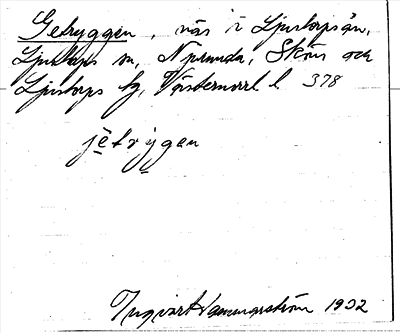 Getryggen, näs i Ljustorpsån,
Ljustorps sn, Njurunda, Sköns och
Ljustorps tg, Västernorrl l. 378
jetrygen
Ingvart Hammarström 1932